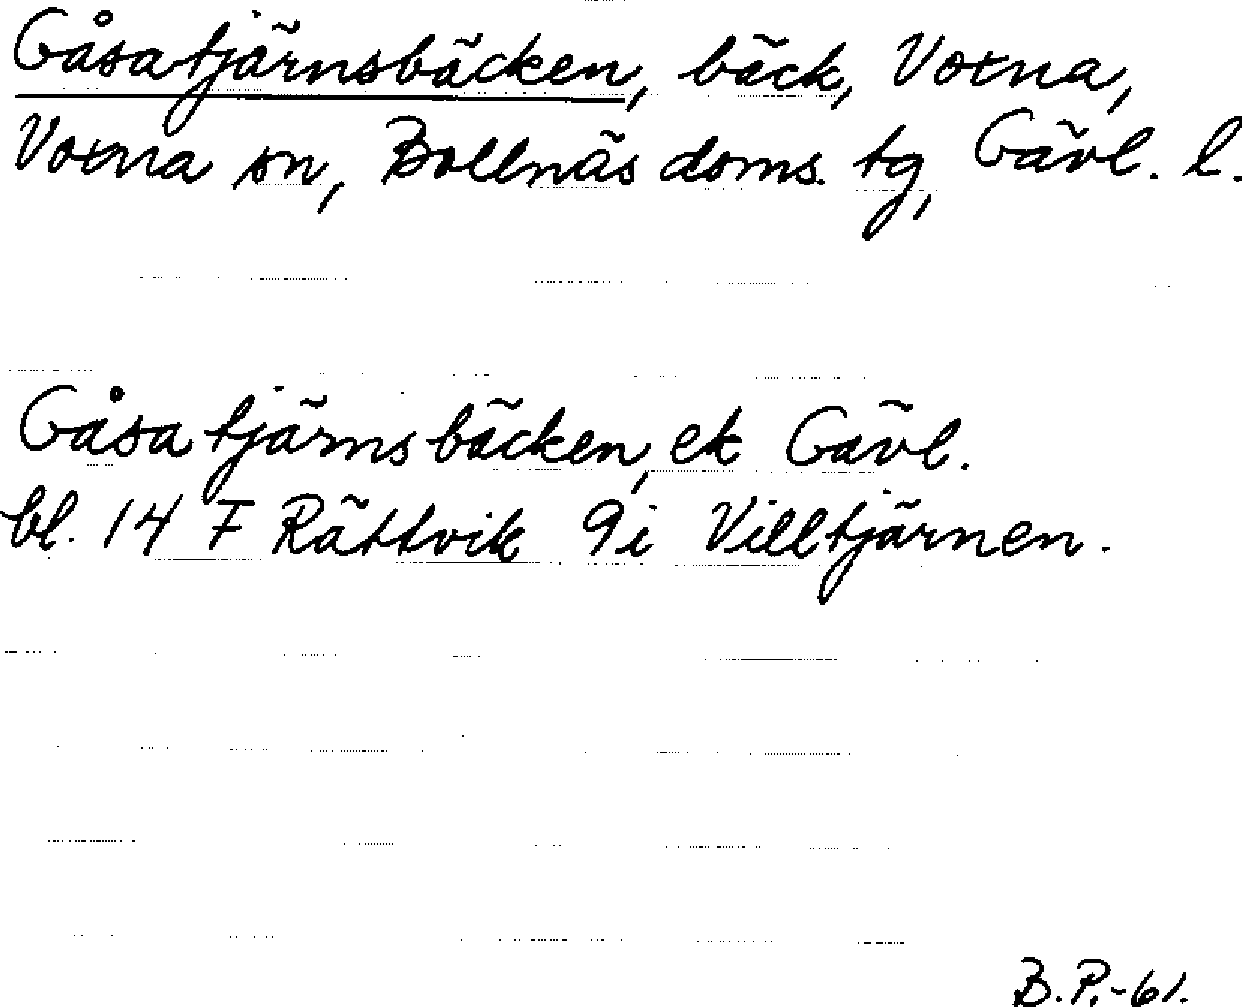 Gåsatjärnsbäcken, bäck, Voxna,
Voxna sn, Bollnäs doms. tg, Gävl. l.
Gåsatjärnsbäcken, ek Gävl.
bl. 14 F Rättvik 9i Villtjärnen.
B.P.-61.